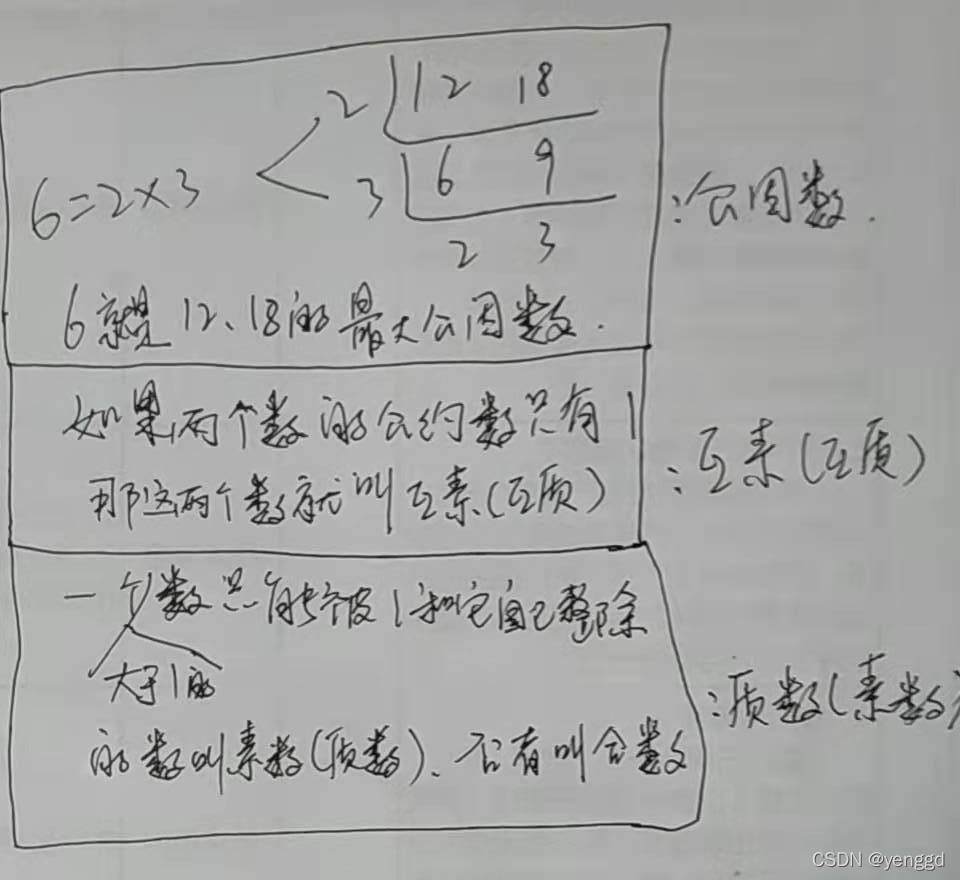 2 12 18
6=2×3
3 6 9
:公因数.
2 3
6就是12、18的最大公因数.
如果两个数的公约数只有1
那这两个数就叫互素(互质)
:互素(互质)
一个数只能够被1和它自己整除
大于1的
:质数(素数)
的数叫素数(质数)、否有叫合数
CSDN @yenggd